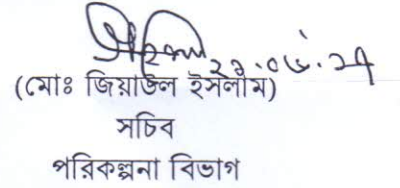 ২৯.০৬.১৭
(মোঃ জিয়াউল ইসলাম)
সচিব
পরিকল্পনা বিভাগ